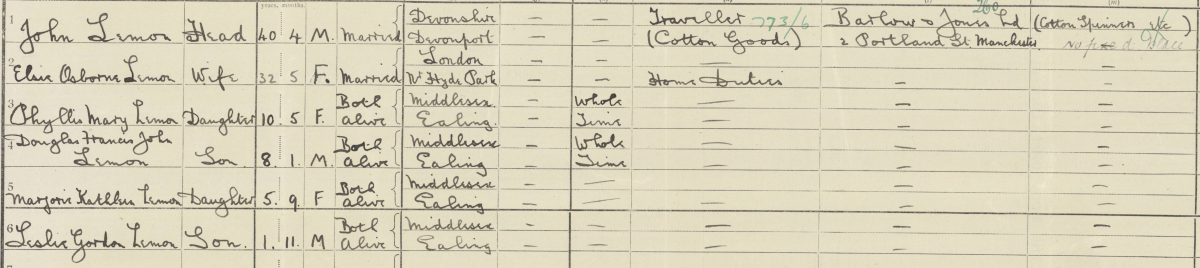 years. months.
1 John Lemon Head 40 4 M. Married Devonshire Devonport — — Traveller (Cotton Goods) 773/6 Barlow & Jones Ld 2 Portland St. Manchester. 260 (Cotton Spinners &c) No
2 Elsie Osborne Lemon Wife 32 5 F. Married London Nr Hyde Park — — Home Duties — —
3 Phyllis Mary Lemon Daughter 10. 5 F. Both alive Middlesex Ealing. — Whole Time — — —
4 Douglas Francis John Lemon Son 8. 1. M. Both Alive Middlesex Ealing — Whole Time — — —
5 Marjorie Kathleen Lemon Daughter 5. 9. F Both alive Middlesex Ealing — — — —
6 Leslie Gordon Lemon Son. 1. 11. M Both Alive Middlesex Ealing — — — — —